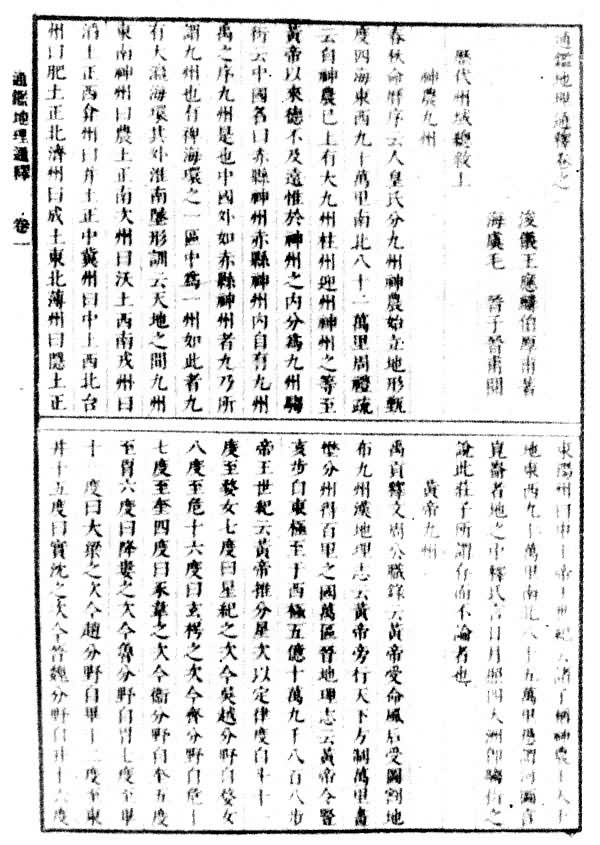 通鑑地理通釋卷之一
浚儀王應麟伯厚甫著
海虞毛　晉子晉甫閱
歷代州域總敘上
神農九州
春秋命曆序云人皇氏分九州神農始立地形甄
度四海東西九十萬里南北八十二萬里周禮疏
云自神農已上有大九州柱州迎州神州之等至
黃帝以來德不及遠惟於神州之內分爲九州騶
衍云中國名曰赤縣神州赤縣神州內自有九州
禹之序九州是也中國外如赤縣神州者九乃所
謂九州也有裨海環之一區中爲一州如此者九
有大瀛海環其外淮南墬形訓云天地之間九州
東南神州曰農土正南次州曰沃土西南戎州曰
滔土正西弇州曰幷土正中冀州曰中土西北台
州曰肥土正北濟州曰成土東北薄州曰隱土正
東陽州曰申土帝王世紀云諸子稱神農王天下
地東西九十萬里南北八十五萬里愚謂河圖言
崑崙者地之中釋氏言日月照四大洲卽騶衍之
說此莊子所謂存而不論者也
黃帝九州
禹貢釋文周公職錄云黃帝受命風后受圖割地
布九州漢地理志云黃帝旁行天下方制萬里畫
壄分州得百里之國萬區晉地理志云黃帝令豎
亥步自東極至于西極五億十萬九千八百八步
帝王世紀云黃帝推分星次以定律度自斗十一
度至婺女七度曰星紀之次今吳越分野自婺女
八度至危十六度曰玄枵之次今齊分野自危十
七度至奎四度曰豕韋之次今衞分野自奎五度
至胃六度曰降婁之次今魯分野自胃七度至畢
十一度曰大梁之次今趙分野自畢十二度至東
井十五度曰實沈之次今晉魏分野自井十六度
通鑑地理通釋　卷一